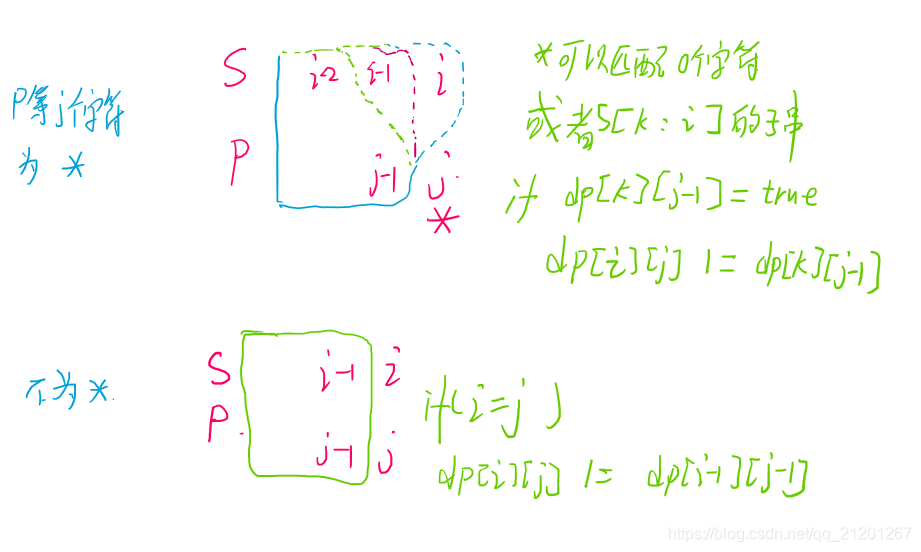 P等j个字符
为 *
S i-2 i-1 i
P j-1 j
*
*可以匹配0个字符
或者S[k:i]的子串
if dp[k][j-1]=true
dp[i][j] |= dp[k][j-1]
不为*.
S i-1 i
P. j-1 j
if(i=j)
dp[i][j] |= dp[i-1][j-1]
https://blog.csdn.net/qq_21201267